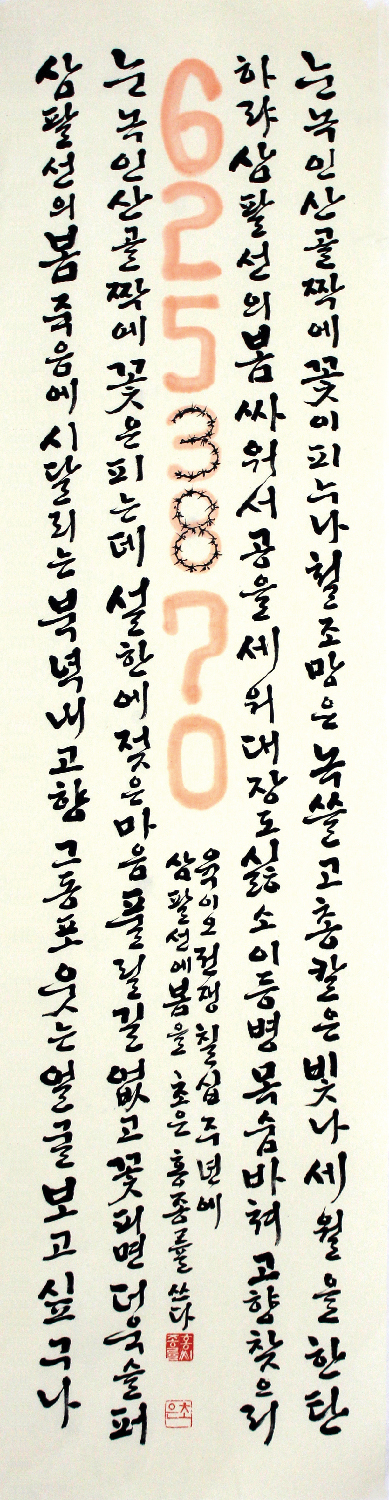 눈녹인산골짝에꽃이피누나철조망은녹쓸고총칼은빛나세월을한탄
하랴삼팔선의봄싸워서공을세워대장도싫소이등병목숨바쳐고향찾으리
6253870
육이오전쟁칠십주년에
삼팔선에봄을 초은 홍종률 쓰다
초은
눈녹인산골짝에꽃은피는데설한에젖은마음풀릴길없고꽃피면더욱슬퍼
삼팔선의봄죽음에시달리는북녘내고향그동포웃는얼굴보고싶구나